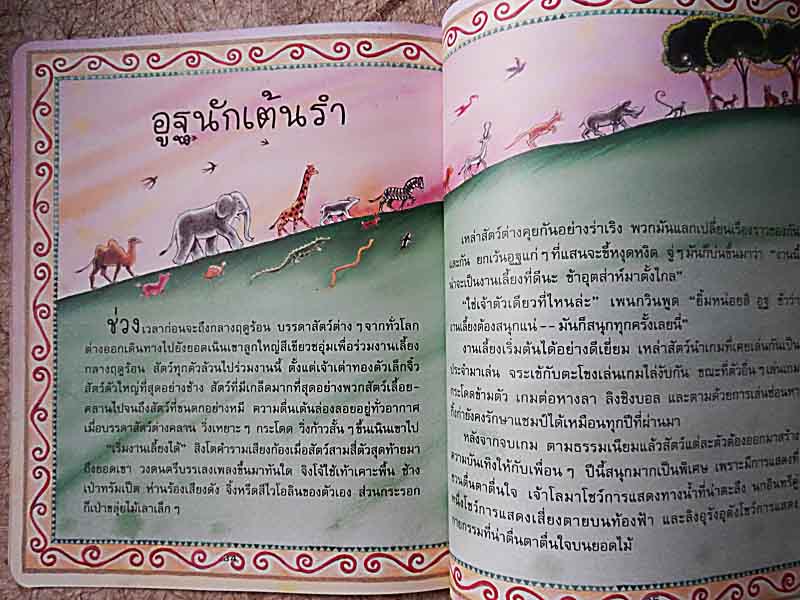 อูฐนักเต้นรำ
ช่วงเวลาก่อนจะถึงกลางฤดูร้อน บรรดาสัตว์ต่าง ๆ จากทั่วโลก
ต่างออกเดินทางไปยังยอดเนินเขาลูกใหญ่สีเขียวชอุ่มเพื่อร่วมงานเลี้ยง
กลางฤดูร้อน สัตว์ทุกตัวล้วนไปร่วมงานนี้ ตั้งแต่เจ้าเต่าทองตัวเล็กจิ๋ว
สัตว์ตัวใหญ่ที่สุดอย่างช้าง สัตว์ที่มีเกล็ดมากที่สุดอย่างพวกสัตว์เลื้อย-
คลานไปจนถึงสัตว์ที่ขนดกอย่างหมี ความตื่นเต้นล่องลอยอยู่ทั่วอากาศ
เมื่อบรรดาสัตว์ต่างคลาน วิ่งเหยาะ ๆ กระโดด วิ่งก้าวสั้น ๆ ขึ้นเนินเขาไป
"เริ่มงานเลี้ยงได้" สิงโตคำรามเสียงก้องเมื่อสัตว์สามสี่ตัวสุดท้ายมา
ถึงยอดเขา วงดนตรีบรรเลงเพลงขึ้นมาทันใด จิงโจ้ใช้เท้าเคาะพื้น ช้าง
เป่าทรัมเป็ต ห่านร้องเสียงดัง จิ้งหรีดสีไวโอลินของตัวเอง ส่วนกระรอก
ก็เป่าขลุ่ยไม้เลาเล็ก ๆ
34
เหล่าสัตว์ต่างคุยกันอย่างร่าเริง พวกมันแลกเปลี่ยนเรื่องราวของกัน
และกัน ยกเว้นอูฐแก่ ๆ ที่แสนจะขี้หงุดหงิด จู่ ๆ มันก็บ่นขึ้นมาว่า "งานนี้
น่าจะเป็นงานเลี้ยงที่ดีนะ ข้าอุตส่าห์มาตั้งไกล"
"ใช่เจ้าตัวเดียวที่ไหนล่ะ" เพนกวินพูด "ยิ้มหน่อยสิ อูฐ ข้าว่า
งานเลี้ยงต้องสนุกแน่ -- มันก็สนุกทุกครั้งเลยนี่"
งานเลี้ยงเริ่มต้นได้อย่างดีเยี่ยม เหล่าสัตว์นำเกมที่เคยเล่นกันเป็น
ประจำมาเล่น จระเข้กับตะโขงเล่นเกมไล่งับกัน ขณะที่ตัวอื่น ๆ เล่นเกม
กระโดดข้ามตัว เกมต่อหางลา ลิงชิงบอล และตามด้วยการเล่นซ่อนหา
กิ้งก่ายังคงรักษาแชมป์ได้เหมือนทุกปีที่ผ่านมา
หลังจากจบเกม ตามธรรมเนียมแล้วสัตว์แต่ละตัวต้องออกมาสร้าง
ความบันเทิงให้กับเพื่อน ๆ ปีนี้สนุกมากเป็นพิเศษ เพราะมีการแสดงที่
ชวนตื่นตาตื่นใจ เจ้าโลมาโชว์การแสดงทางน้ำที่น่าตะลึง นกอินทรีคู่
หนึ่งโชว์การแสดงเสี่ยงตายบนท้องฟ้า และลิงอุรังอุตังโชว์การแสดง
กายกรรมที่น่าตื่นตาตื่นใจบนยอดไม้